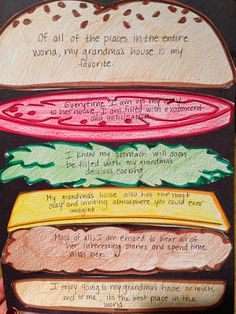 Of all of the places in the entire
world, my grandma's house is my
favorite.
Everytime I am on my way
to her house, I am filled with excitement
and anticipation.
I know my stomach will soon
be filled with my grandma's
delicious cooking.
My grandma's house also has the most
cozy and inviting atmosphere you could ever
imagine.
Most of all, I am excited to hear all of
her interesting stories and spend time
with her.
I enjoy going to my grandma's house so much,
and to me, it's the best place in the
world.